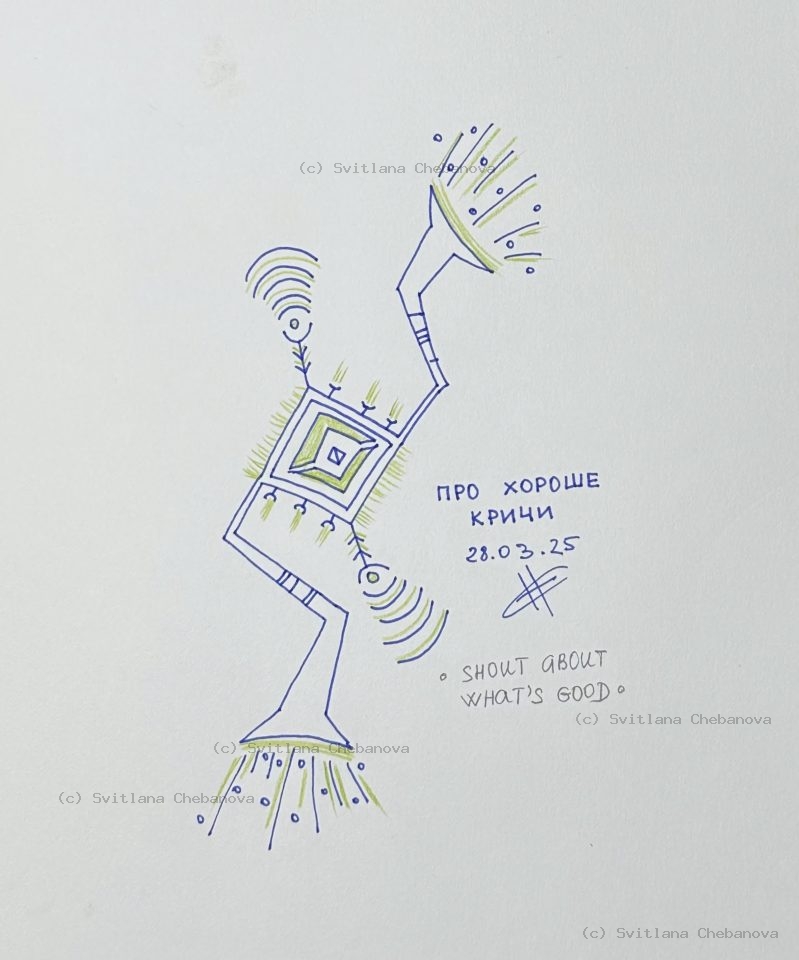 (c) Svitlana Chebanova
ПРО ХОРОШЕ
КРИЧИ
28.03.25
° SHOUT ABOUT
WHAT'S GOOD °
(c) Svitlana Chebanova
(c) Svitlana Chebanova
(c) Svitlana Chebanova
(c) Svitlana Chebanova